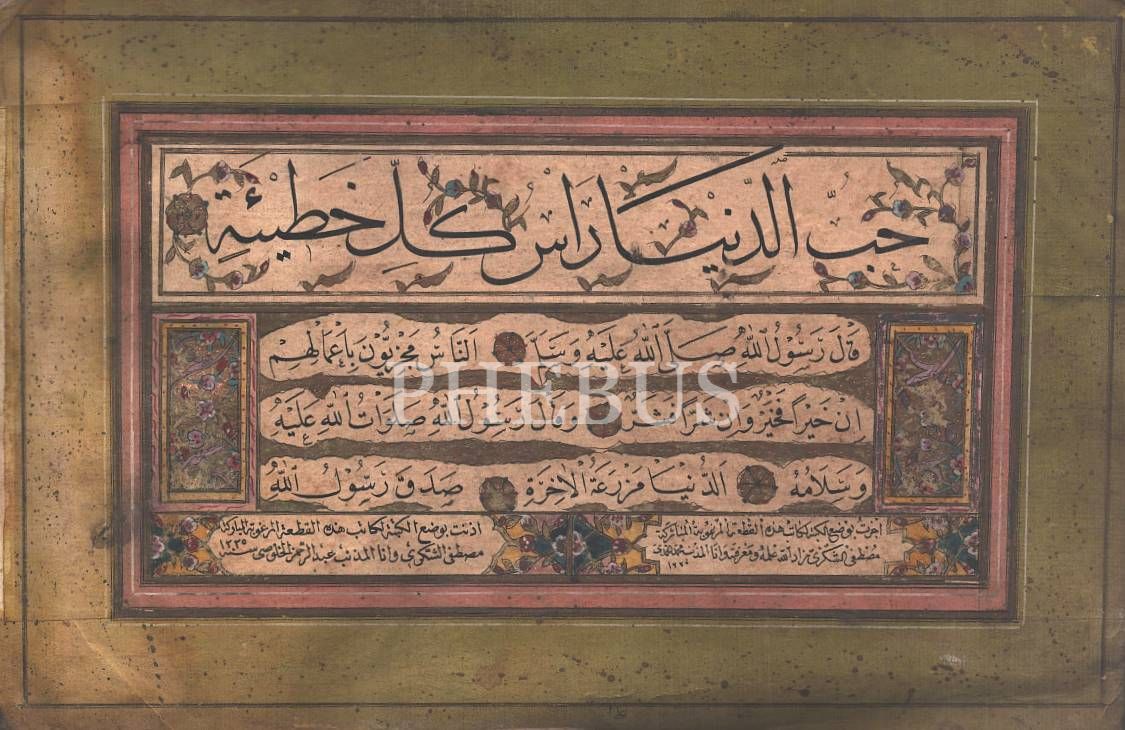 حب الدنيا راس كل خطيئة
قال رسول الله صلى الله عليه وسلم الناس مجزيون باعمالهم
ان خيرا فخير وان شرا فشر وقال رسول الله صلوات الله عليه
وسلامه الدنيا مزرعة الاخرة صدق رسول الله
PHEBUS
اجزت بوضع الكتبة لكاتب هذه القطعة المرغوبة المباركة
مصطفى الشكرى زاد الله علمه ومعرفته وانا المذنب
اذنت بوضع الكتبة لكاتب هذه القطعة المرغوبة المباركة
مصطفى الشكرى وانا المذنب عبد الرحمن الخلوصى سنه ١٢٣٥